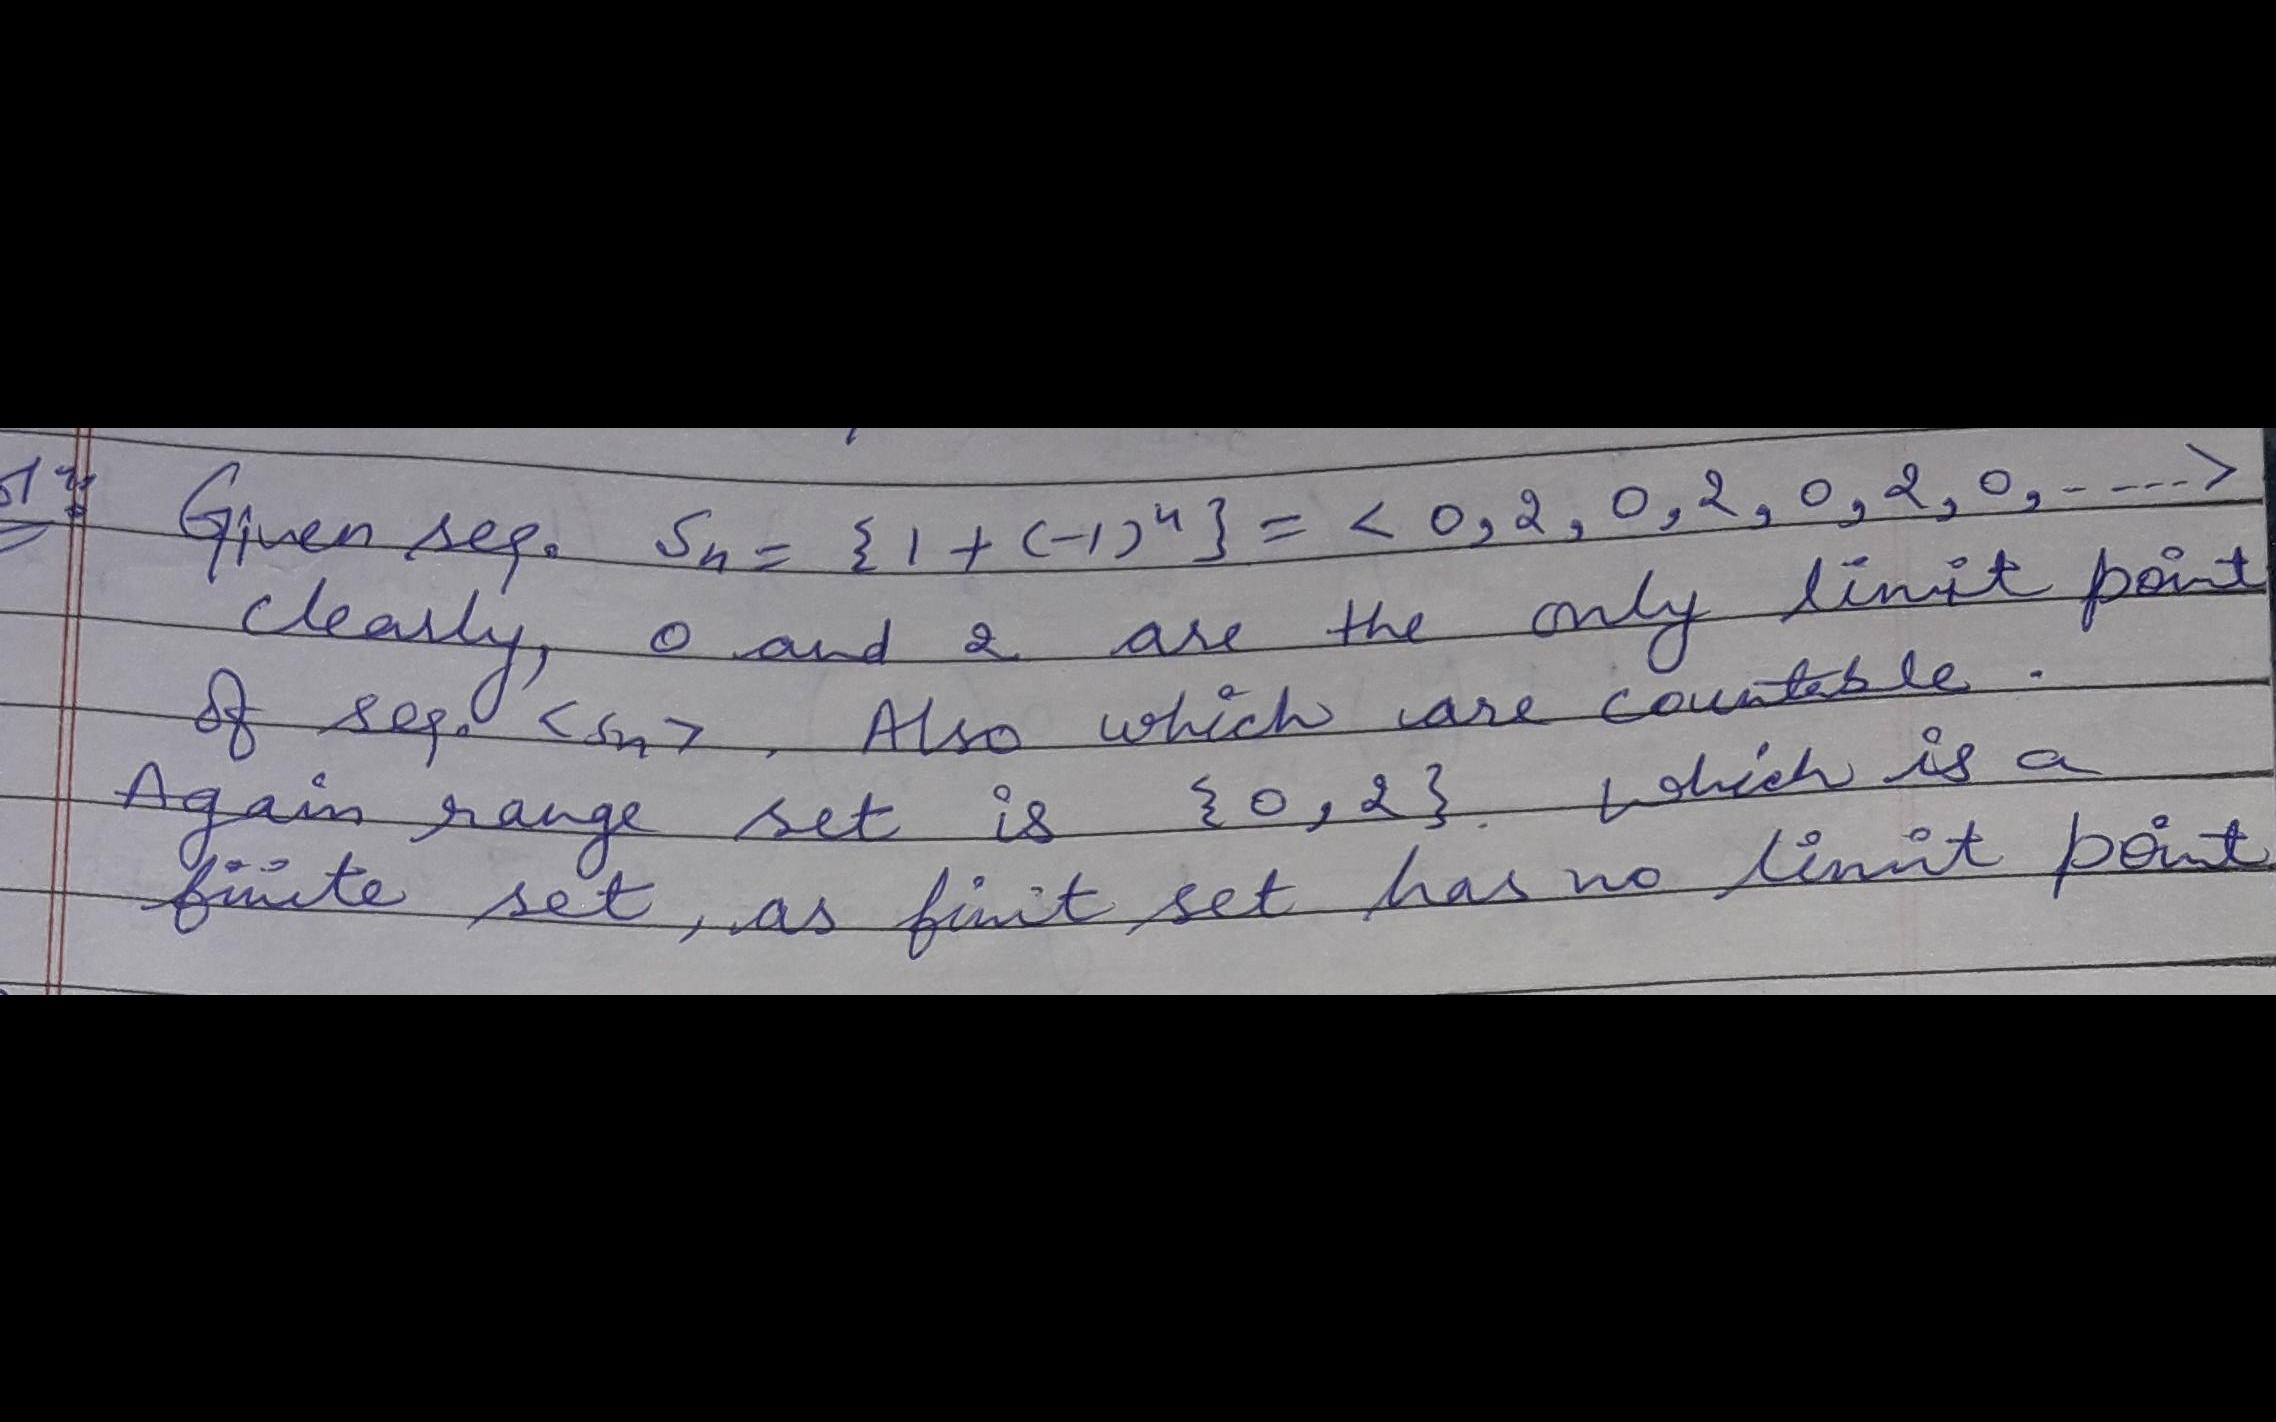 Given seq. Sn = {1 + (-1)^n} = < 0, 2, 0, 2, 0, 2, 0, - ---->
clearly, 0 and 2 are the only limit point
of seq. <Sn>. Also which are countable.
Again range set is {0, 2}. which is a
finite set, as finit set has no limit point